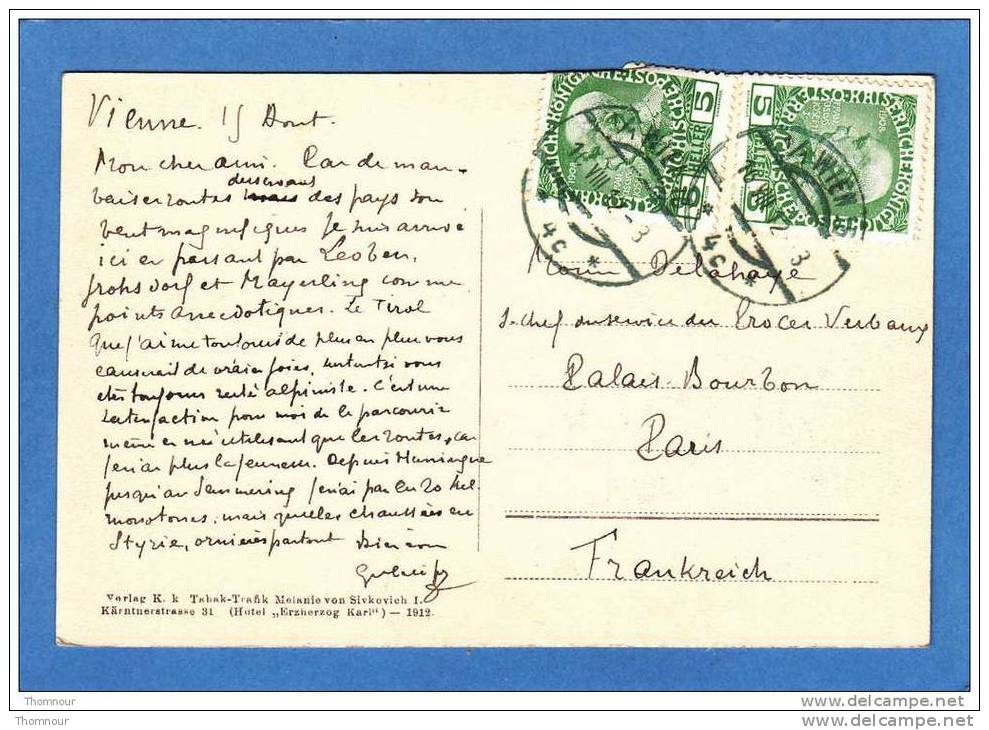 Vienne. 15 Aout.
Mon cher ami. Par de mau-
vaises routes desservant des pays sou
vent magnifiques je suis arrivé
ici en passant par Leoben,
Frohsdorf et Mayerling comme
points anecdotiques. Le Tirol
que j'aime toujours de plus en plus vous
causerait de vraies joies, surtout si vous
étes toujours resté alpiniste. C'est une
satisfaction pour moi de le parcourir
même en n'utilisant que les routes, car
je n'ai plus la jeunesse. Depuis Huningue
jusqu'au Semmering je n'ai pas eu 20 kil.
monotones, mais quelles chaussées en
Styrie, ornières partout Bien à vous
Verlag K. k Tabak-Trafik Melanie von Sivkovich I.
Kärntnerstrasse 31 (Hotel „Erzherzog Karl“) — 1912.
Morin Delahaye
S. Chef du service des Procès Verbaux
Palais-Bourbon
Paris
Frankreich
KAISERLICHE KÖNIGLICHE ÖSTERREICHISCHE POST
5 HELLER 5
1/1 WIEN
VIII 12
4c
Thomnour
Thomnour
delcampe.net
delcampe.net